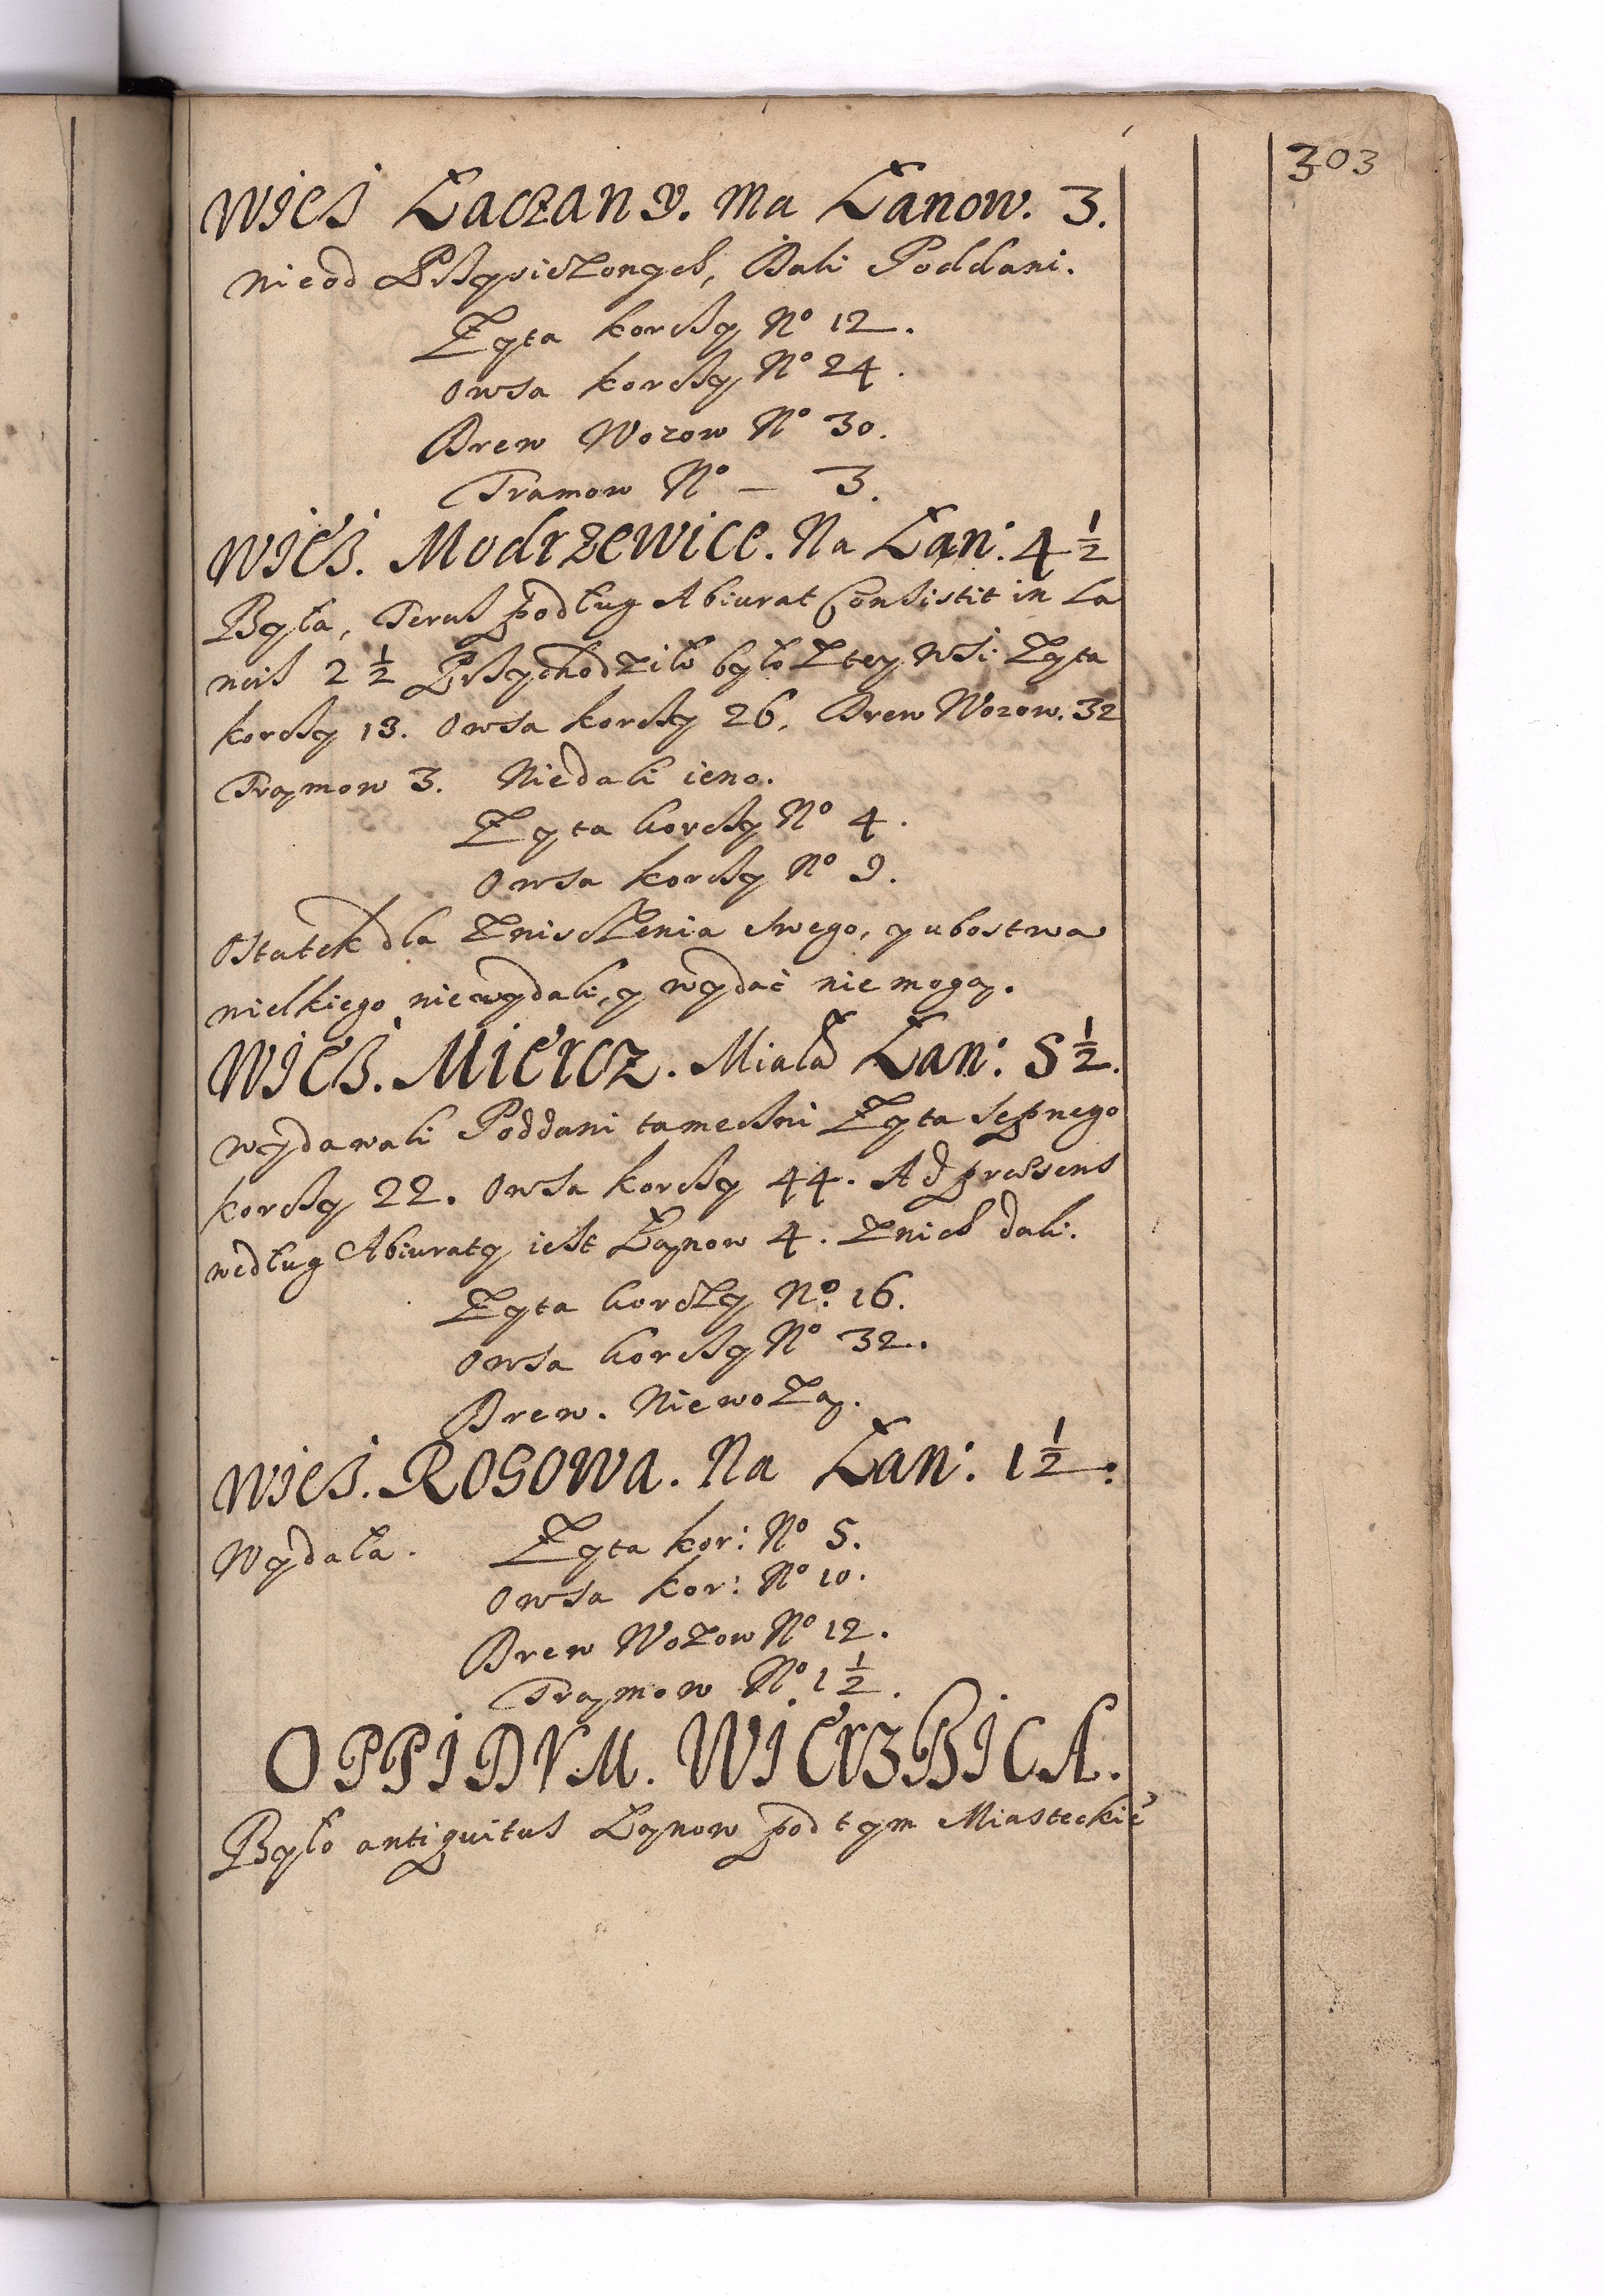 303
WIES ŁaczanY. Ma Łanow. 3.
Nieod Przysiężonych, Dali Poddani.
Zyta korczy No 12.
Owsa korczy No 24.
Drew Wozow No 30.
Tramow No — 3.
WIES. Modrzewice. Na Łan: 4 ½
Była, Teras podług Abiurat Consistit in La
neis 2 ½ Przychodziło było z tey Wsi Zyta
korczy 13. Owsa korczy 26. Drew Wozow. 32
Tramow 3. Niedali ieno.
Zyta korczy No 4.
Owsa korczy No 9.
Ostatek dla Znisczenia swego, y ubostwa
wielkiego niewydali, y wydać niemogą.
WIES. MIERCZ. Miała Łan: 5 ½.
wydawali Poddani tameczni Zyta sepnego
korczy 22. Owsa korczy 44. Ad præsens
według Abiuraty iest Łanow 4. Znich dali.
Zyta korczy No. 16.
Owsa korczy No 32.
Drew. Niewożą.
WIES. ROGOWA. Na Łan: 1 ½.
Wydała. Zyta kor: No 5.
Owsa kor: No 10.
Drew Wozow No 12.
Tramow No 1 ½.
OPPIDVM. WIERZBICA.
Było antiquitus Łanow pod tym Miasteckiē